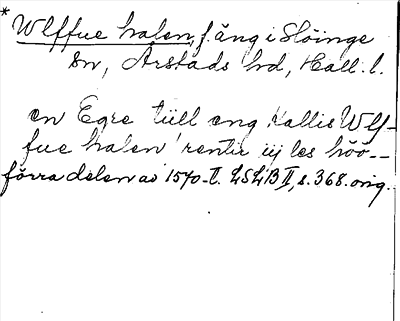 * Wlffue halen, f. äng i Slöinge
sn, Årstads hd, Hall. l.
en Egre tüll eng kallis Wlf-
fue halen rentir iij les höö --
förra delen av 1570-t. LSLB II, s. 368. orig.